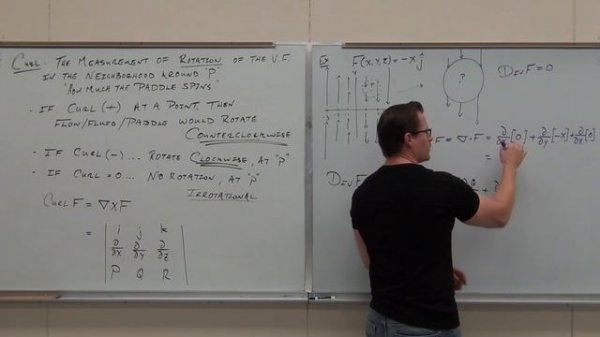 CURL: THE MEASUREMENT OF ROTATION OF THE V.F.
IN THE NEIGHBORHOOD AROUND "P"
"HOW MUCH THE PADDLE SPINS"
· IF CURL (+) AT A POINT, THEN
FLOW/FLUID/PADDLE WOULD ROTATE
COUNTERCLOCKWISE
· IF CURL (-) ... ROTATE CLOCKWISE, AT "P"
· IF CURL = 0 ... NO ROTATION, AT "P"
IRROTATIONAL
CURL F = ∇ X F
= | i j k |
| ∂/∂x ∂/∂y ∂/∂z |
| P Q R |
Ex
F(x,y,z) = -x j
?
DIV F = 0
F = ∇ · F = ∂/∂x [0] + ∂/∂y [-x] + ∂/∂z [0]
=
DIV F